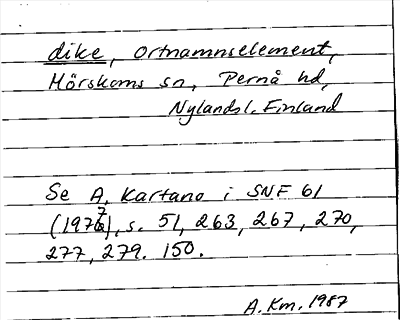 dike, ortnamnselement,
Mörskoms sn, Pernå hd,
Nylandsl. Finland
Se A. Kartano i SNF 61
(1977), s. 51, 263, 267, 270,
277, 279. 150.
A.Km. 1987